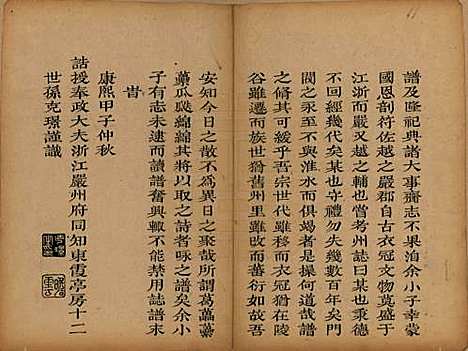 譜及隆祀典諸大事齋志不果洎余小子幸蒙
國恩剖符佐越之嚴郡自古衣冠文物莫盛于
江浙而嚴又越之輔也嘗考州誌曰某也秉德
不回經幾代矣某也守禮勿失幾數百年矣門
閥之永至不與淮水而俱竭者是操何道哉譜
之脩其可緩乎吾宗世代雖移而衣冠猶在陵
谷雖遷而族世猶舊州里雖改而蕃衍如故吾
安知今日之散不為異日之聚哉所謂葛藟纍
藁瓜瓞綿綿其將以取之詩者咏之譜矣余小
子有志未逮而讀譜奮興輒不能禁用誌譜末
旹
康熙甲子仲秋
誥授奉政大夫浙江嚴州府同知東霞亭房十二
世孫克璟謹識